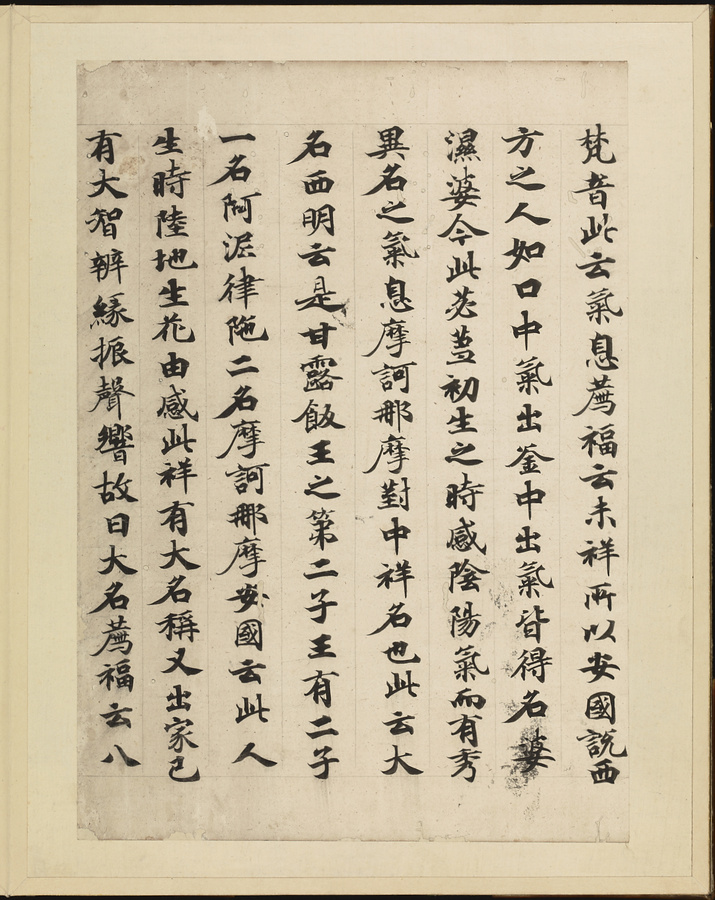 梵音此云氣息薦福云未祥所以安國說西
方之人如口中氣出釜中出氣皆得名婆
濕婆今此必葢初生之時感陰陽氣而有秀
異名之氣息摩訶那摩對中祥名也此云大
名西明云是甘露飯王之第二子王有二子
一名阿泥律陁二名摩訶那摩安國云此人
生時陸地生花由感此祥有大名稱又出家已
有大智辨緣振聲響故曰大名薦福云八